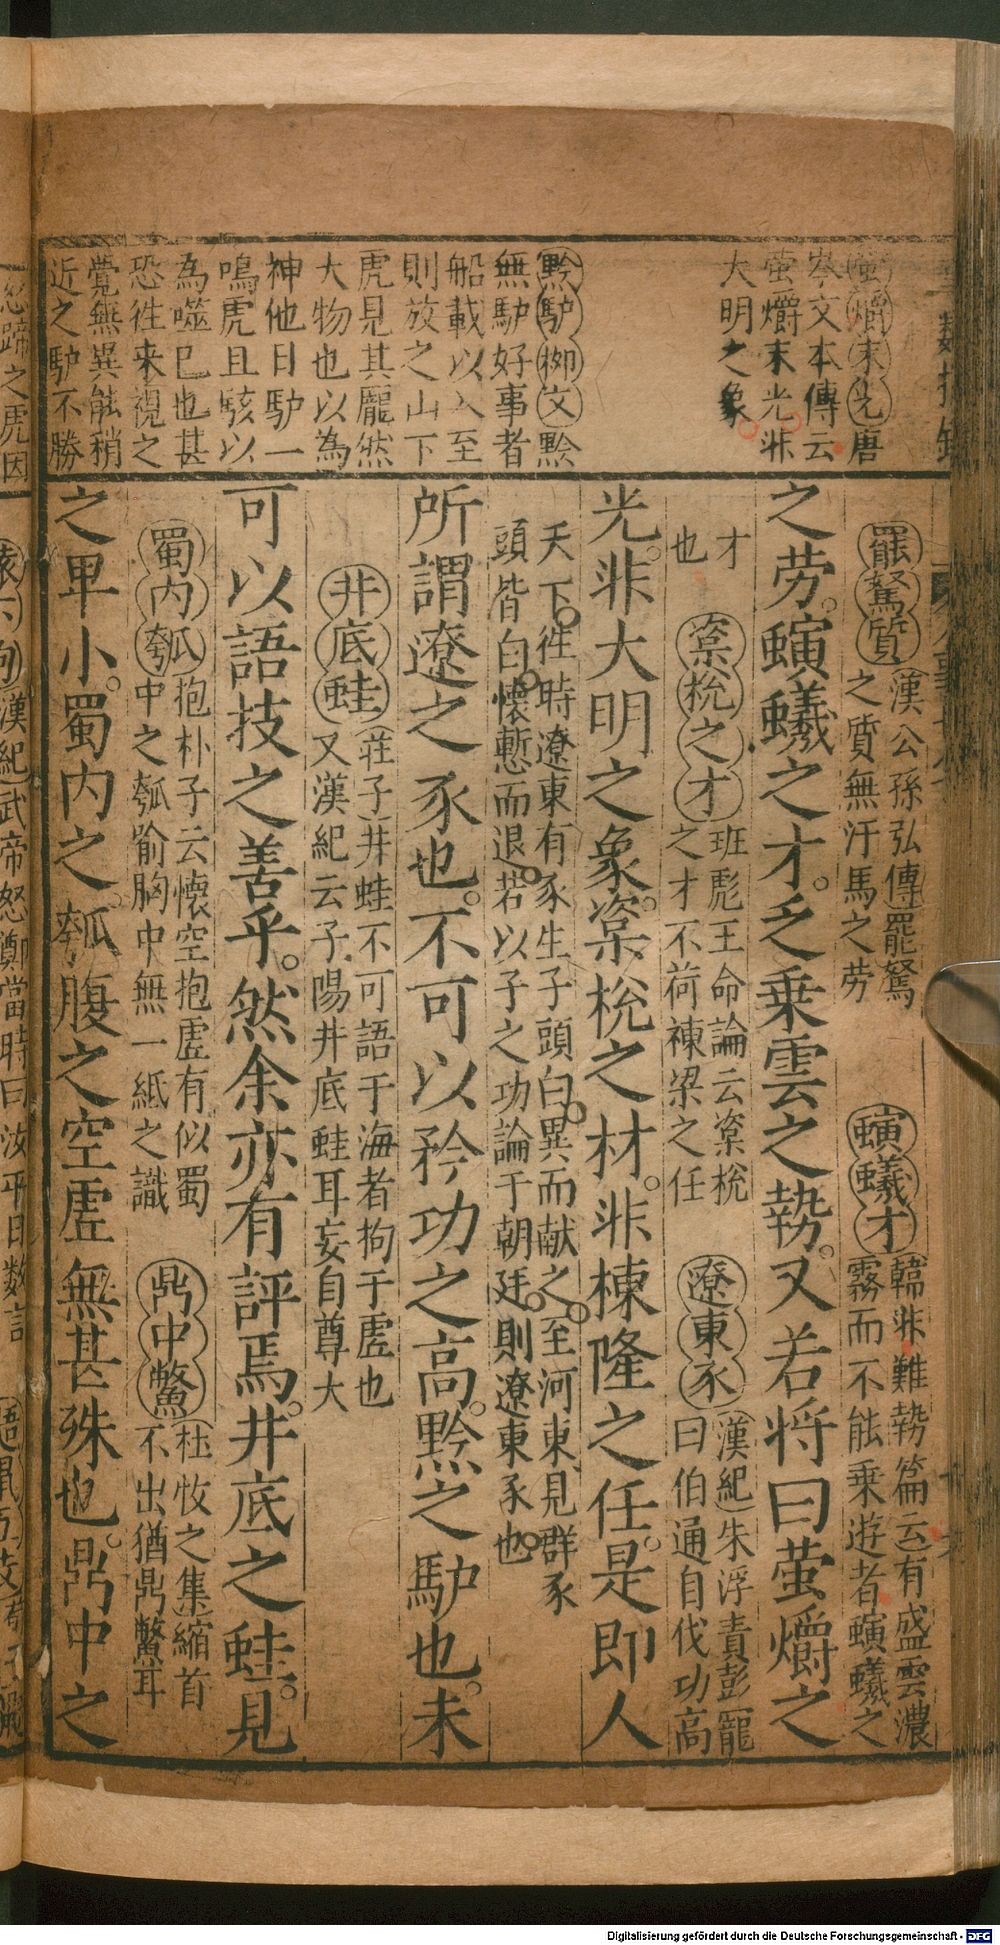 螢爝末光唐
岑文本傳云
螢爝末光非
大明之象
黔馿栁文黔
無馿好事者
船載以入至
則放之山下
虎見其龐然
大物也以為
神他日馿一
鳴虎且駭以
為噬已也甚
恐徃來視之
覺無異能稍
近之馿不勝
罷駑質漢公孫弘傳罷駑
之質無汙馬之劳
螾蟻才韓非難勢篇云有盛雲濃
霧而不能乗遊者螾蟻之
之劳螾蟻之才乏乗雲之勢又若将曰螢爝之
才
也
楶梲之才班彪王命論云楶梲
之才不荷棟梁之任
遼東豕漢紀朱浮責彭寵
曰伯通自伐功高
光非大明之象楶梲之材非棟隆之任是即人
天下徃時遼東有豕生子頭白異而献之至河東見群豕
頭皆白懐慙而退若以子之功論于朝廷則遼東豕也
所謂遼之豕也不可以矜功之高黔之馿也未
井底蛙莊子井蛙不可語于海者拘于虛也
又漢紀云子陽井底蛙耳妄自尊大
可以語技之善乎然余亦有評焉井底之蛙見
蜀内瓠抱朴子云懐空抱虛有似蜀
中之瓠腧胸中無一紙之識
鼎中鱉杜牧之集縮首
不出猶鼎鱉耳
之卑小蜀内之瓠腹之空虛無甚殊也鼎中之
怒蹄之虎因
轅下駒漢紀武帝怒鄭當時曰汝平日数言